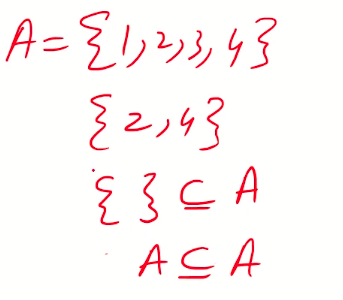 A = {1,2,3,4}
{2,4}
{ } ⊆ A
A ⊆ A